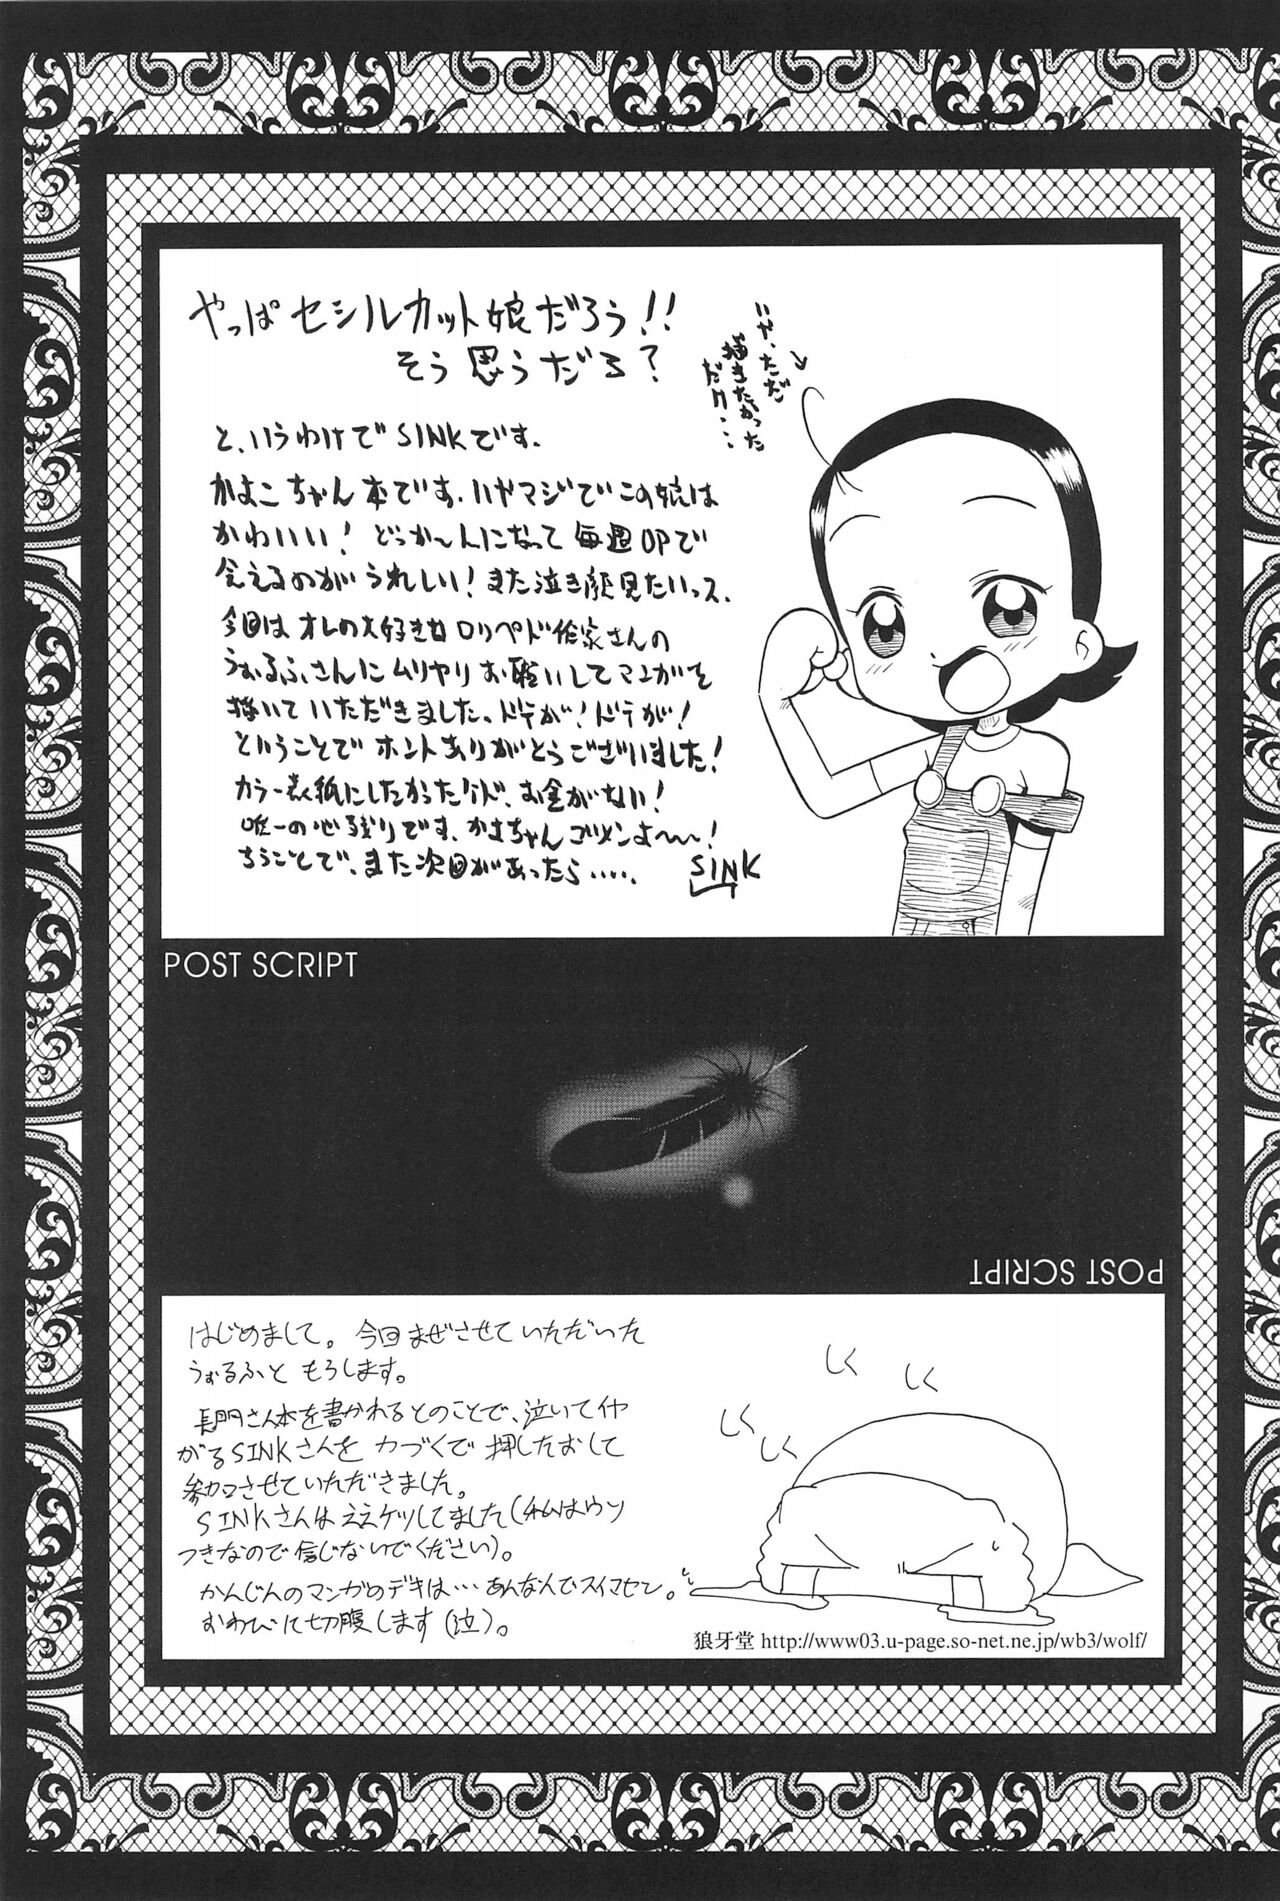 やっぱセシルカット娘だろう!!
そう思うだろ?
いや、ただ
描きたかった
だけ・・・
と、いうわけでSINKです.
かよこちゃん本です.いやマジでこの娘は
かわいい!どっか〜んになって毎週OPで
会えるのがうれしい!また泣き顔見たいっス.
今回はオレの大好きなロリペド作家さんの
うぉるふさんにムリヤリお願いしてマンガを
描いていただきました.ドテが!ドテが!
ということでホントありがとうございました!
カラー表紙にしたかったケド、お金がない!
唯一の心残りです.かよちゃんゴメンよ〜〜!
ちうことで、また次回があったら・・・・.
SINK
POST SCRIPT
POST SCRIPT
はじめまして。今回まぜさせていただいた
うぉるふと もうします。
長門さん本を書かれるとのことで、泣いてイヤ
がるSINKさんを力づくで押したおして
参加させていただきました。
SINKさんはええケツしてました(私はウソ
つきなので信じないでください)。
かんじんのマンガのデキは…あんなんでスイマセン。
おわびに切腹します(泣)。
しく
しく
しく
しく
狼牙堂 http://www03.u-page.so-net.ne.jp/wb3/wolf/